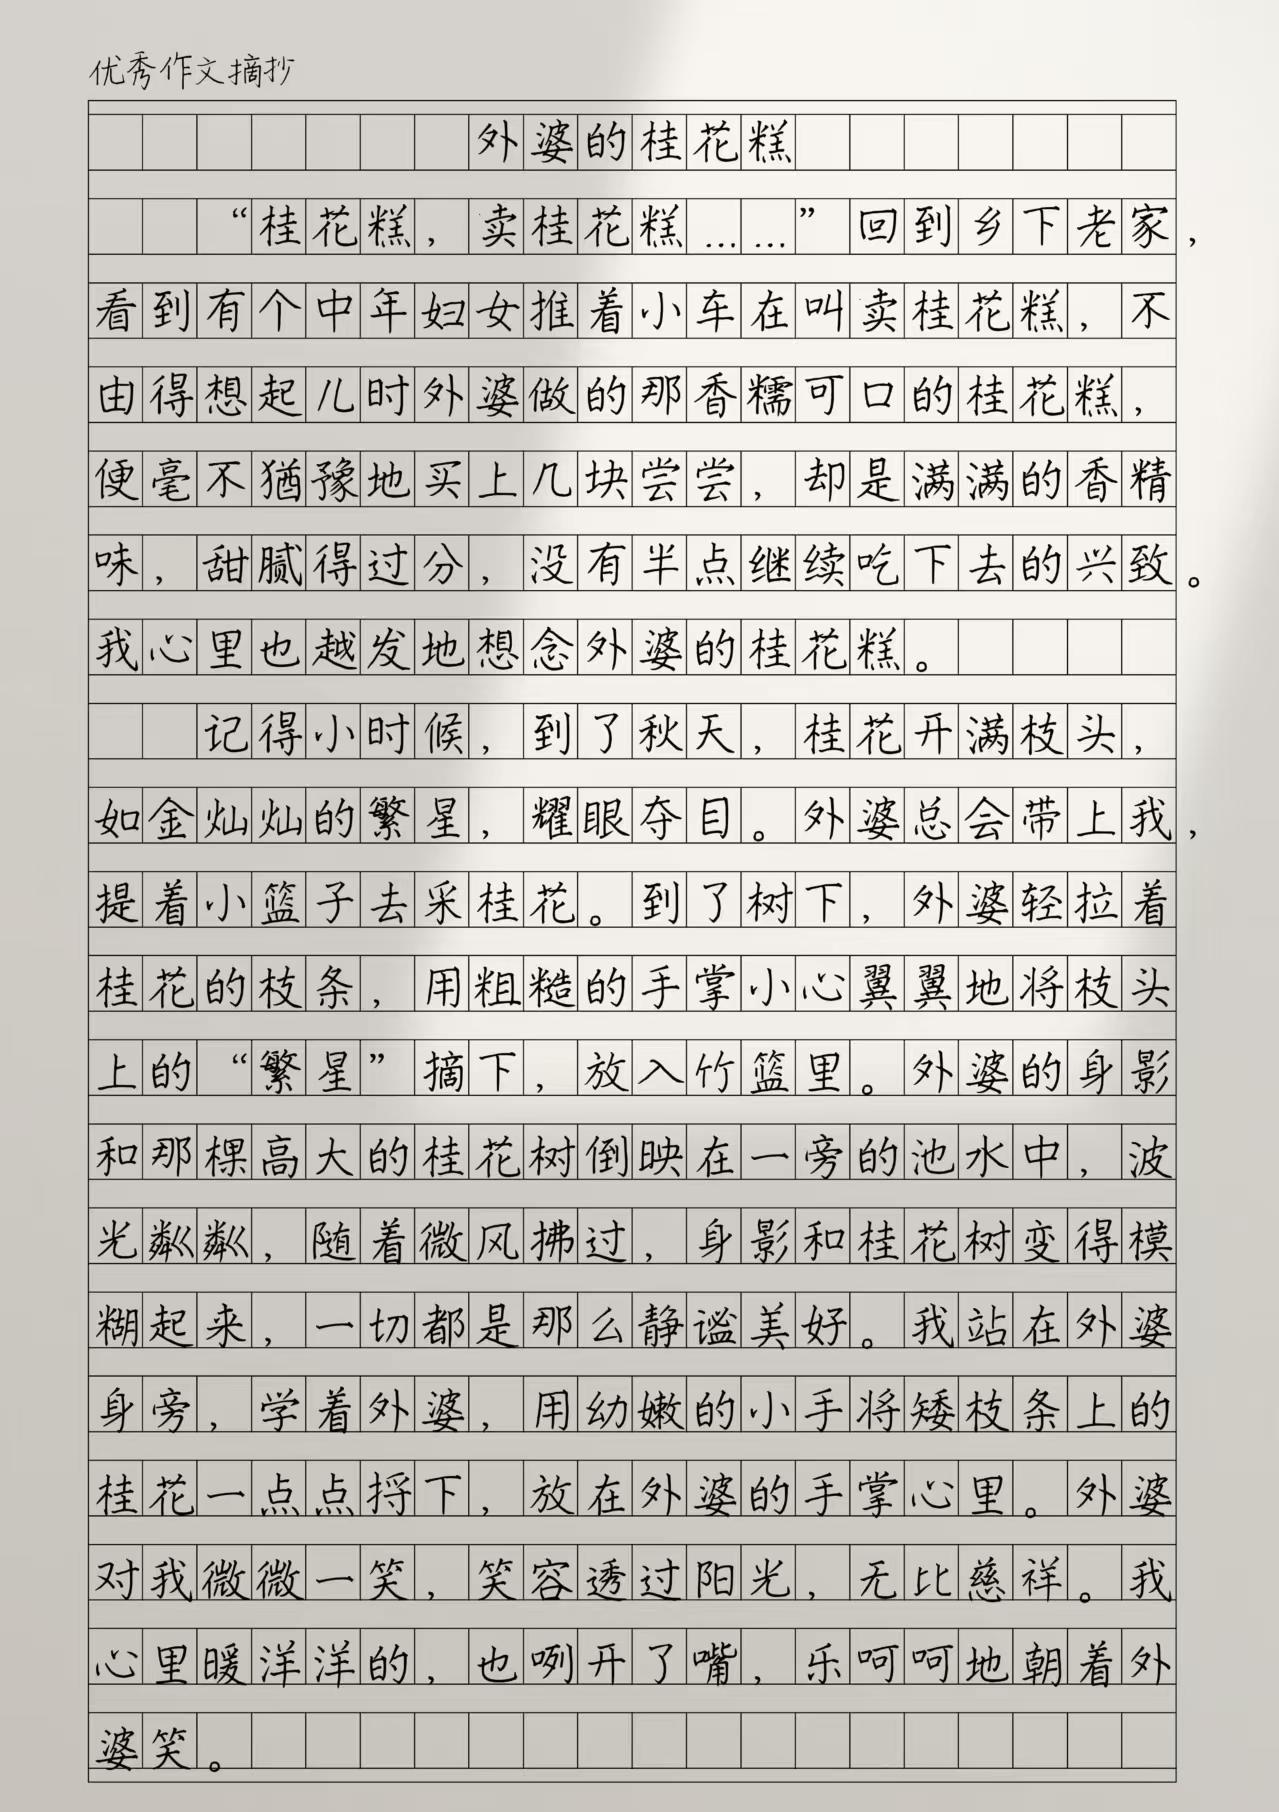 优秀作文摘抄
外婆的桂花糕
“桂花糕，卖桂花糕……”回到乡下老家，
看到有个中年妇女推着小车在叫卖桂花糕，不
由得想起儿时外婆做的那香糯可口的桂花糕，
便毫不犹豫地买上几块尝尝，却是满满的香精
味，甜腻得过分，没有半点继续吃下去的兴致。
我心里也越发地想念外婆的桂花糕。
记得小时候，到了秋天，桂花开满枝头，
如金灿灿的繁星，耀眼夺目。外婆总会带上我，
提着小篮子去采桂花。到了树下，外婆轻拉着
桂花的枝条，用粗糙的手掌小心翼翼地将枝头
上的“繁星”摘下，放入竹篮里。外婆的身影
和那棵高大的桂花树倒映在一旁的池水中，波
光粼粼，随着微风拂过，身影和桂花树变得模
糊起来，一切都是那么静谧美好。我站在外婆
身旁，学着外婆，用幼嫩的小手将矮枝条上的
桂花一点点捋下，放在外婆的手掌心里。外婆
对我微微一笑，笑容透过阳光，无比慈祥。我
心里暖洋洋的，也咧开了嘴，乐呵呵地朝着外
婆笑。